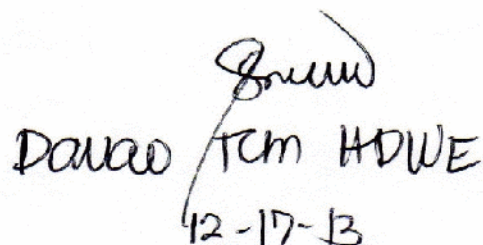 Davao TCM HDWE
12-17-13